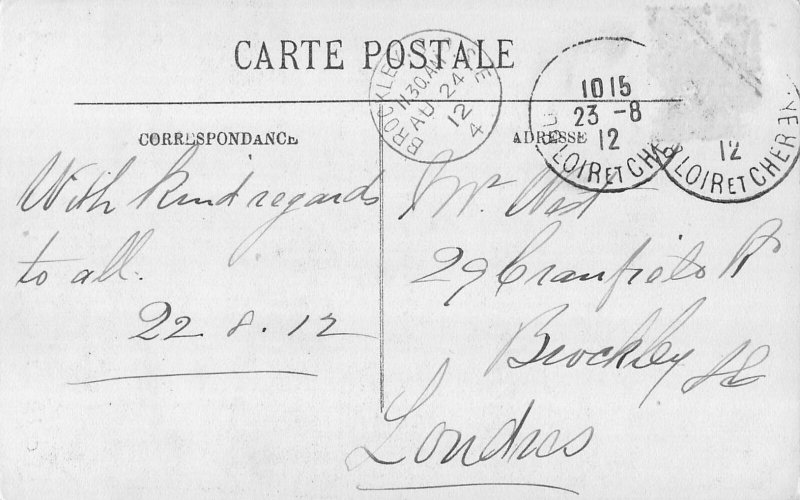 CARTE POSTALE
BROCKLEY S.E
11.30 AM
AU 24
12
4
1015
23 -8
12
LOIR ET CHER
12
LOIR ET CHER
CORRESPONDANCE
ADRESSE
With kind regards
to all.
22.8.12
Mr. West
29 Cranfield Rd
Brockley SE
Londres